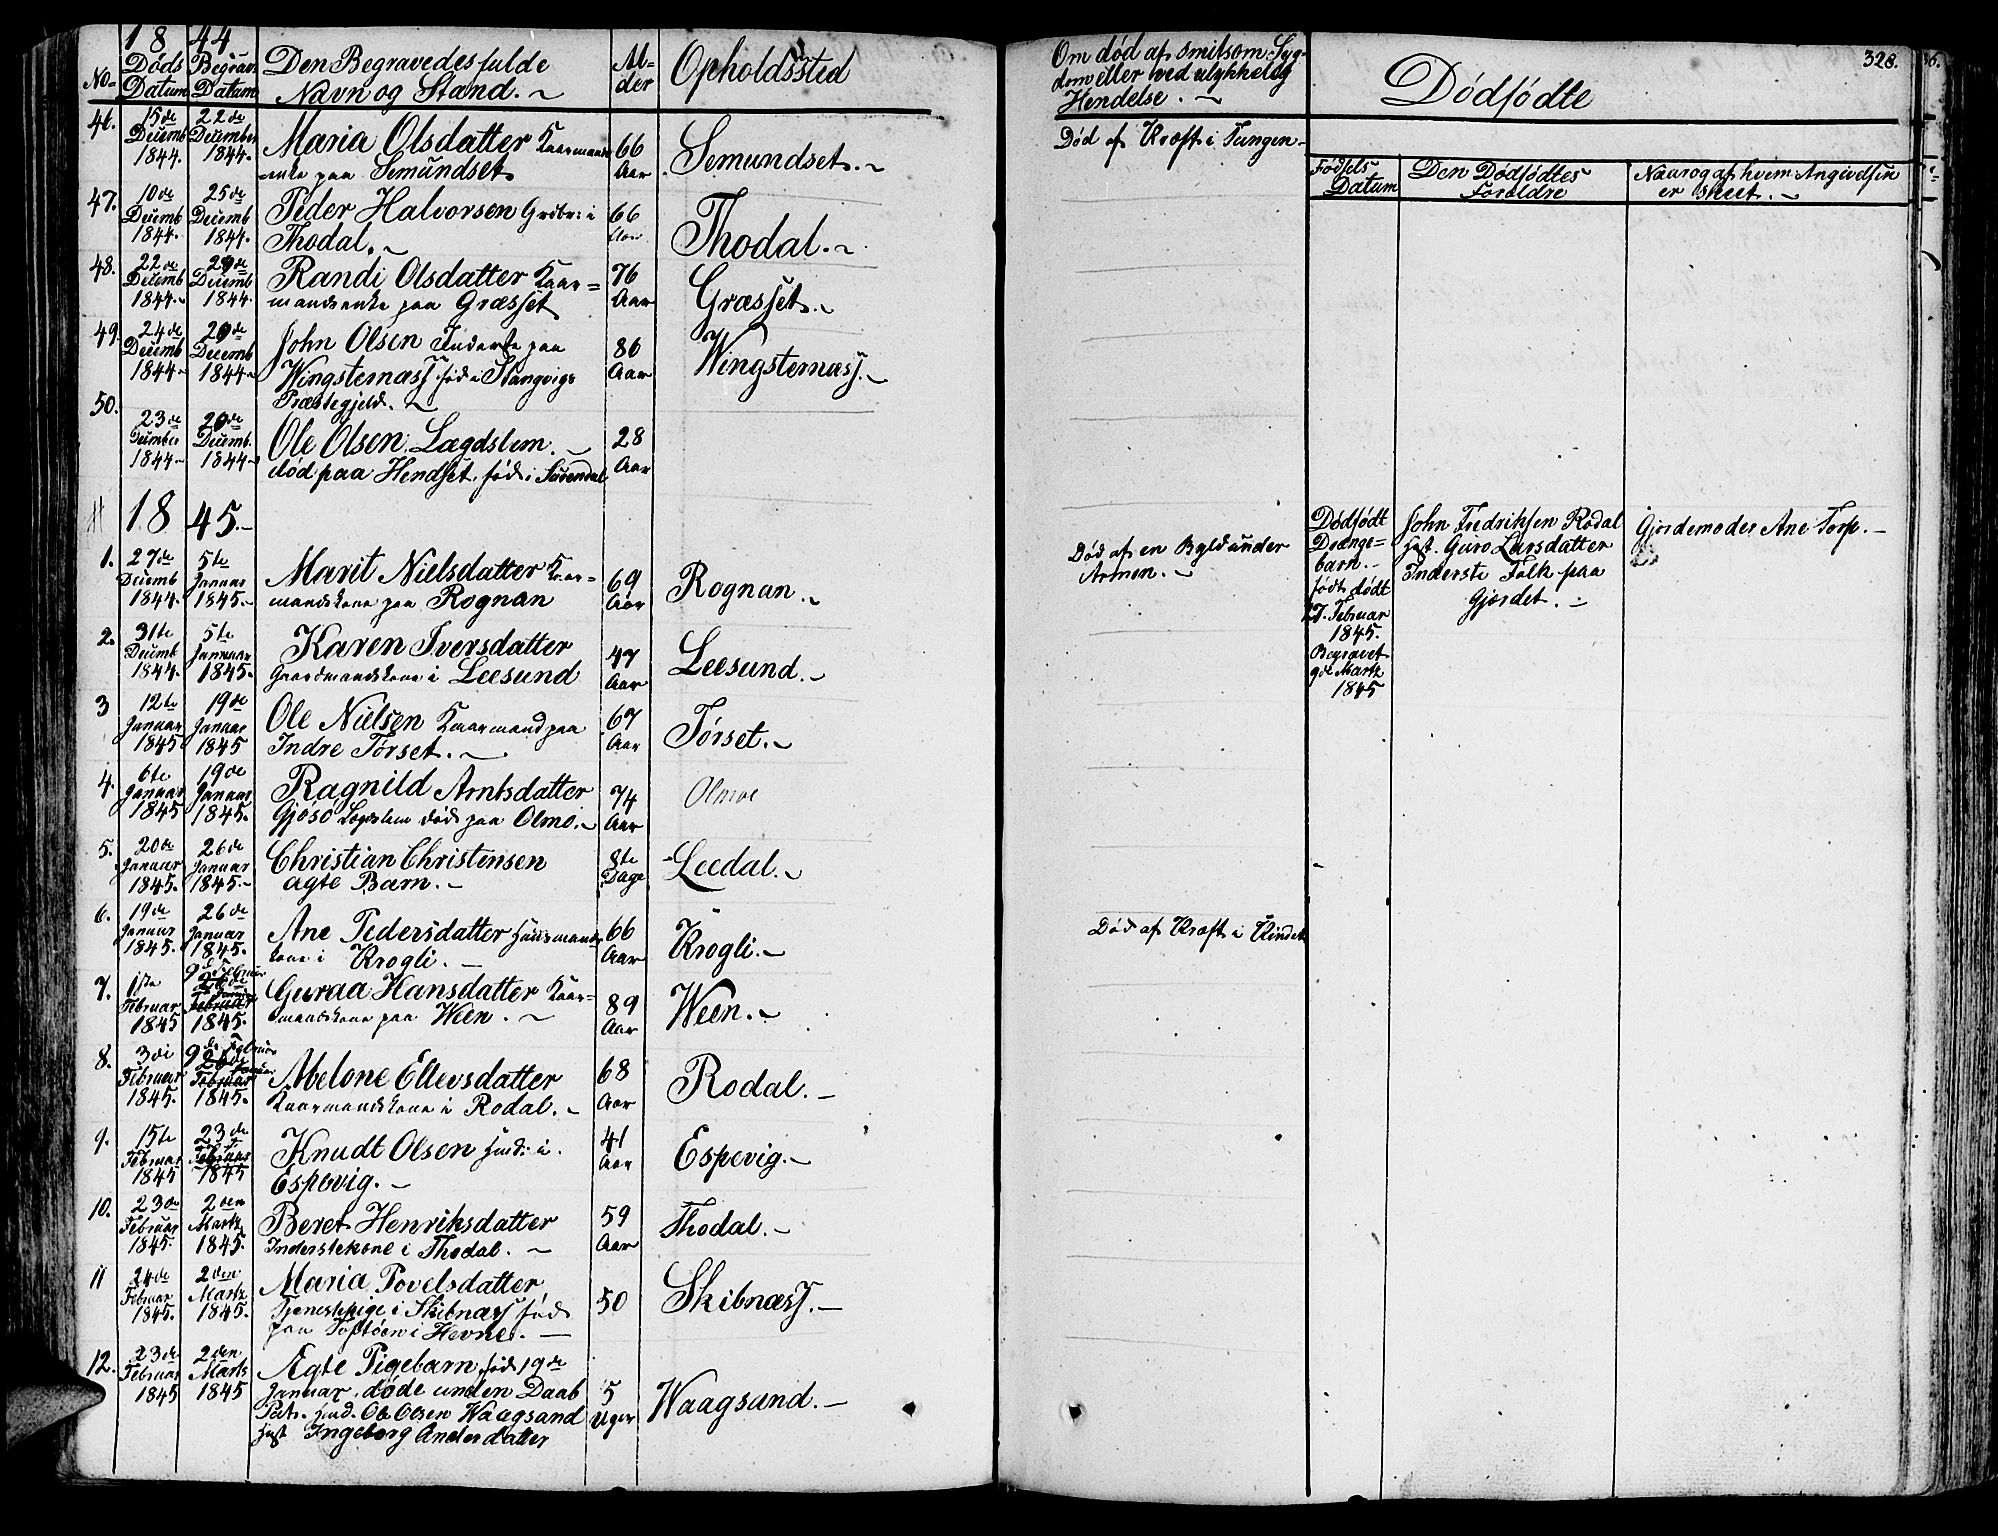 18 44
No-
Døds Datum
Begrav: Datum
Den Begravedes fulde
Navn og Stand. ~
Al-
der
Opholdssted
Om død af smitsom Syg-
dom eller ved ulykkelig
Hendelse. ~
Dødfødte
328.
Fødsels Datum
Den Dødfødtes Forældre
Naar og af hvem Angivelsen
er skeet. ~
46. 15de Decemb 1844. 22de December 1844. Maria Olsdatter Kaarmands
enke paa Semundset 66 Aar. Semundset. ~ Død af Kræft i Tungen
47. 10de Decemb 1844. 25de Decemb 1844. Peder Halvorsen Grdbr: i
Thodal. ~ 66 Aar Thodal. ~
48. 22de Decemb 1844. 29de Decemb 1844. Randi Olsdatter Kaar=
mandsenke paa Græsset 76 Aar Græsset. ~
49. 24de Decemb 1844 29de Decemb 1844 John Olsen Inderste paa
Wingsternæss fød i Stangvigs
Præstegjeld. ~ 86 Aar Wingsternæss. ~
50. 23de December 1844 29de Decemb. 1844 Ole Olsen Lægdslem. ~
død paa Hendset, fød i Surendal 28 Aar
18 45.-
1. 27de Decemb 1844. 5te Januar 1845. Marit Nielsdatter Kaar=
mandskone paa Rognan 69 Aar Rognan. ~ Død af en Byld under
Armen. ~
Dødfødt
Drænge=
barn. -
født dødt
27. Februar
1845.
Begravet
9de Martz
1845
John Fredriksen Rodal
Hust. Guro Larsdatter
Inderste Folk paa
Gjørdet. ~
Gjordemoder Ane Torp. -
2. 31te Decemb 1844. 5te Januar 1845. Karen Iversdatter
Gaardmandskone i Leesund 47 Aar Leesund. ~
3 12te Januar 1845. 19de Januar 1845 Ole Nielsen Kaarmand paa
Indre Tørset. ~ 67 Aar Tørset. ~
4. 6te Januar 1845 19de Januar 1845. Ragnild Arntsdatter
Gjøsø Lægdslem død paa Olmo. ~ 74 Aar Olmoe
5. 20de Januar 1845. 26de Januar 1845. Christian Christensen
ægte Barn. - 8te Dage Leedal. ~
6. 19de Januar 1845. 26de Januar 1845. Ane Pedersdatter Huusmands
kone i Krogli. - 66 Aar Krogli. ~ Død af Kræft i Kindet
7. 1ste Februar 1845 9de Februar 26de Februar 1845. Guraa Hansdatter Kaar=
mandskone paa Ween. ~ 89 Aar Ween. ~
8. 3de Februar 1845. 9de Februar 26de Februar 1845. Abelone Ellevsdatter
Kaarmandskone i Rodal. ~ 68 Aar Rodal. -
9. 15te Februar 1845 23de Februar 1845 Knudt Olsen Husm: i
Espevig. - 41 Aar Espevig. -
10. 23de Februar 1845. 2den Martz 1845. Beret Henriksdatter
Inderstekone i Thodal. ~ 59 Aar Thodal. -
11 24de Februar 1845. 2den Martz 1845. Maria Povelsdatter
Tjenestepige i Skibnæss fød
paa i Hevne. - 50 Skibnæss. -
12. 23de Februar 1845 2den Marts 1845 Ægte Pigebarn fød 19de
Januar, døde uden Daab
Ole Olsen Waagsand
Hust Ingeborg Andersdatter 5 Uger Waagsand. -